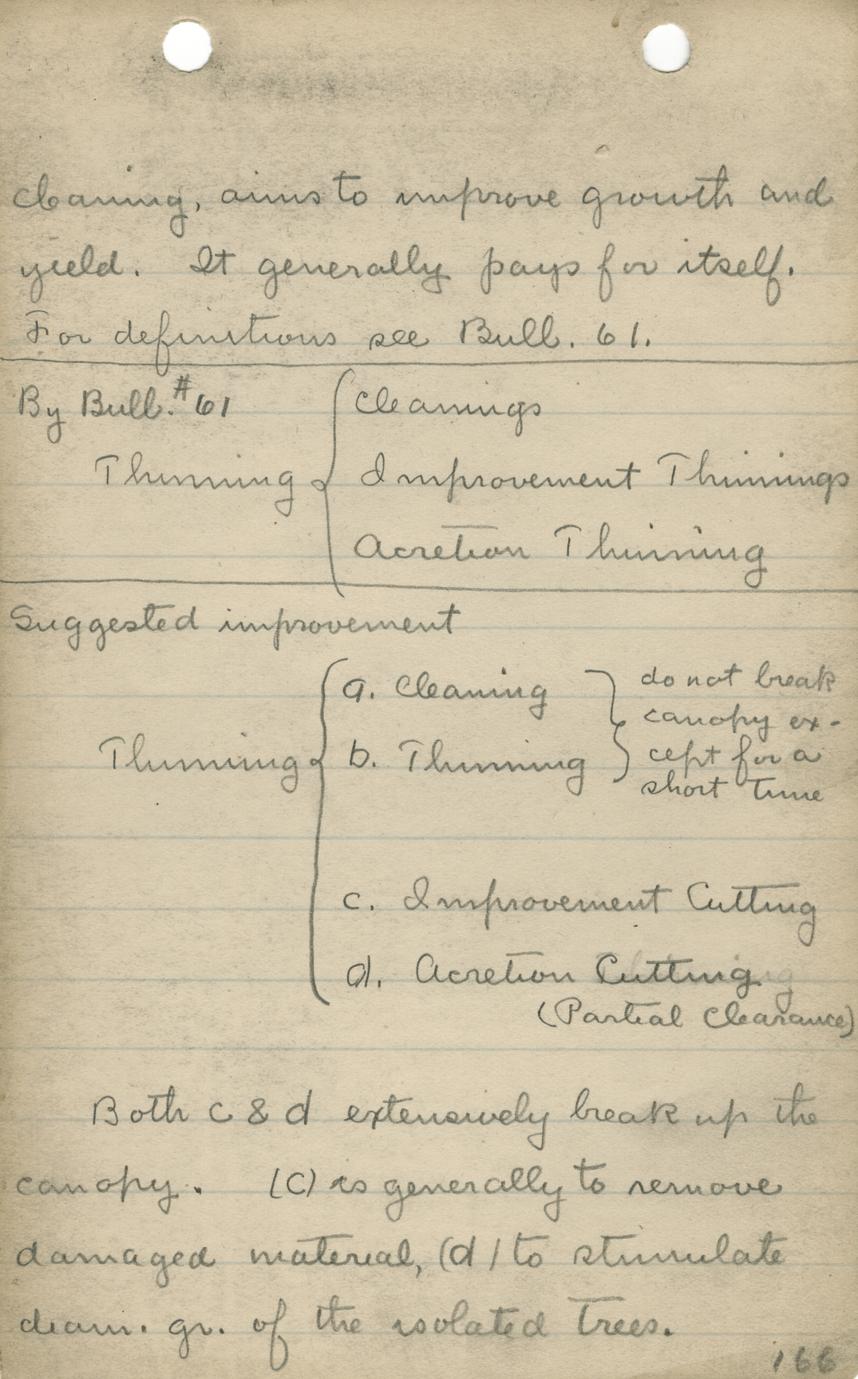 cleaning, aims to improve growth and
yield. It generally pays for itself.
For definitions see Bull. 61.
By Bull. #61
Thinning { Cleanings
Improvement Thinnings
Acretion Thinning
Suggested improvement
Thinning { a. Cleaning
b. Thinning
} do not break
canopy ex-
cept for a
short time
c. Improvement Cutting
d. Acretion Cutting
(Partial Clearance)
Both c & d extensively break up the
canopy. (C) is generally to remove
damaged material, (d) to stimulate
diam. gr. of the isolated trees.
166